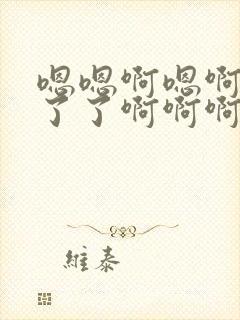 嗯嗯啊嗯啊
了了啊啊啊
維泰